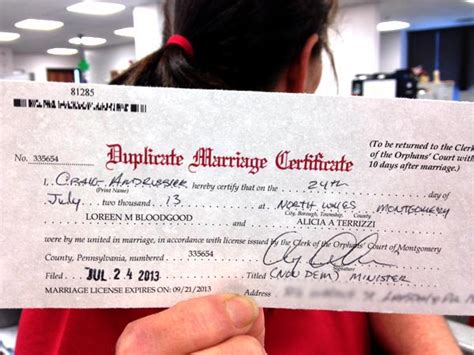 81285
(To be returned to the Clerk
of the Orphans' Court with
10 days after marriage.)
No. 335654 Duplicate Marriage Certificate
I, hereby certify that on the 24th
(Print Name)
July two thousand 13 at North Wales Montgomery
City, Borough, Township County
LOREEN M BLOODGOOD and ALICIA A TERRIZZI
were by me united in marriage, in accordance with license issued by the Clerk of the Orphans' Court of Montgomery
County, Pennsylvania, numbered 335654
Signature
Filed JUL 24 2013 Titled (NON DEM) MINISTER
MARRIAGE LICENSE EXPIRES ON: 09/21/2013 Address